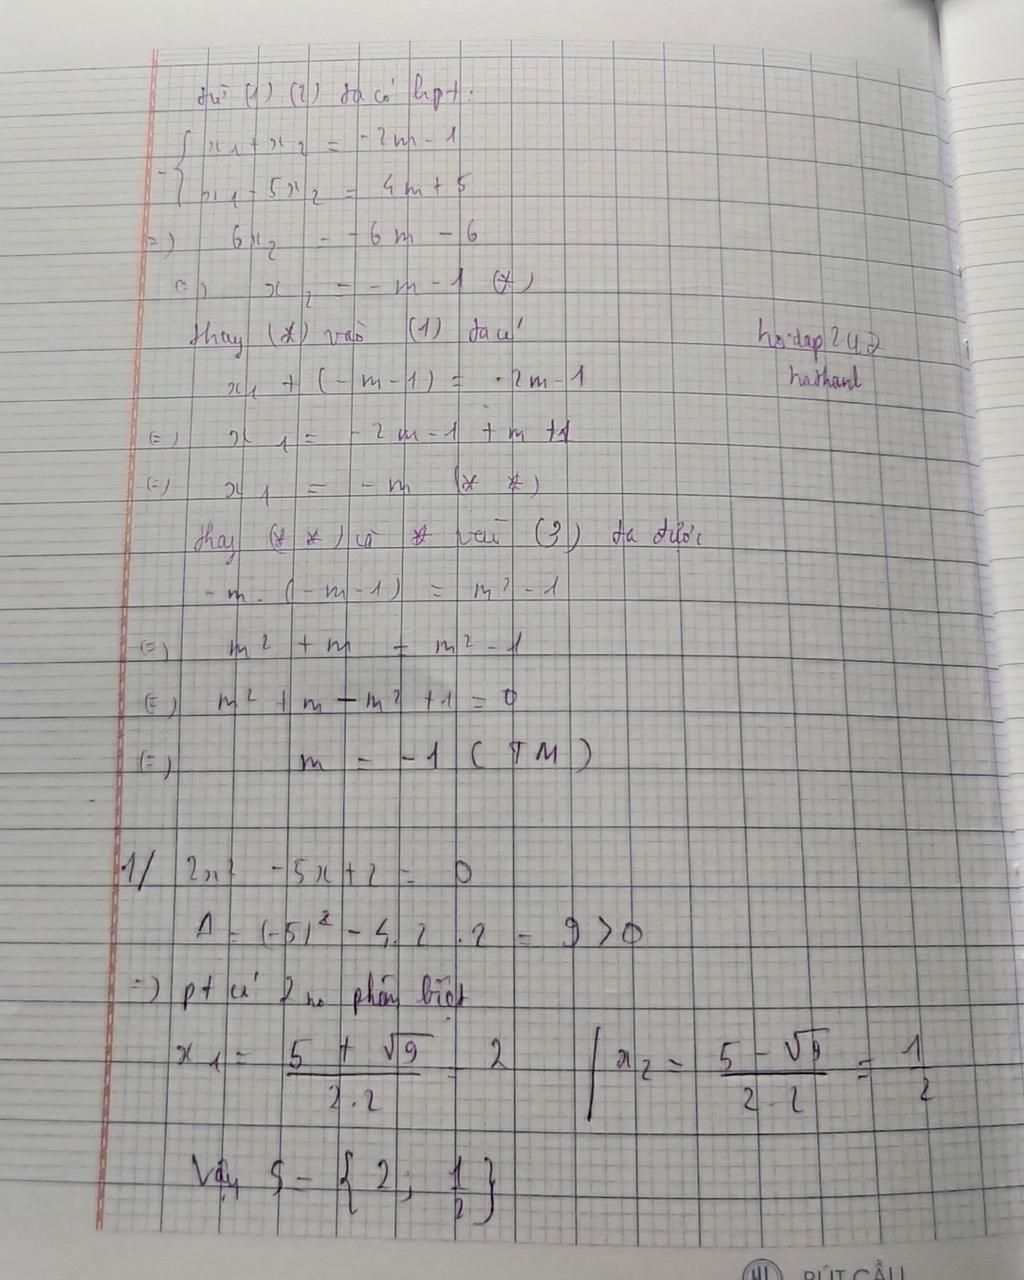 từ (1) (2) ta có hpt:
{ x₁ + x₂ = -2m - 1
x₁ - 5x₂ = 4m + 5
=) 6x₂ = -6m - 6
(=) x₂ = -m - 1 (*)
thay (*) vào (1) ta có
hoidap247
x₁ + (-m-1) = -2m-1
hathanl
(=) x₁ = -2m-1 + m +1
(=) x₁ = -m (* *)
thay (* *) và * vào (3) ta được
-m. (-m-1) = m² - 1
(=) m² + m = m² - 1
(=) m² + m - m² + 1 = 0
(=) m = -1 (TM)
1/ 2x² - 5x + 2 = 0
Δ = (-5)² - 4. 2 .2 = 9 > 0
=) pt có 2 no phân biệt
x₁ = (5 + √9)/(2.2) = 2 / x₂ = (5 - √9)/(2.2) = 1/2
Vậy S = { 2; 1/2 }
BÚT CẦU